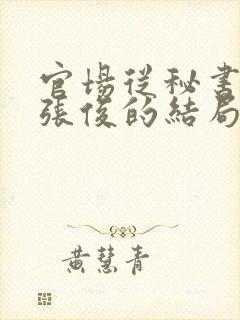 官場從秘書
張俊的結局
黃慧青